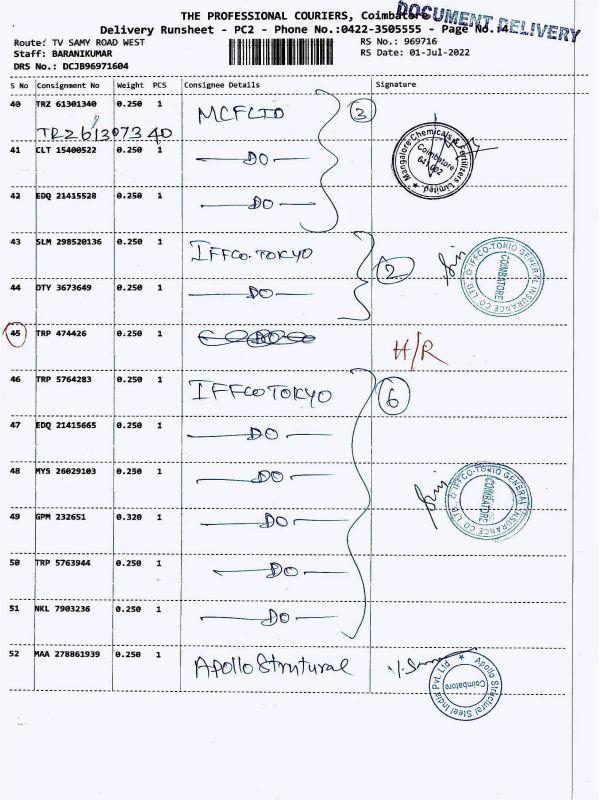 THE PROFESSIONAL COURIERS, Coimbatore
DOCUMENT DELIVERY
Delivery Runsheet - PC2 - Phone No.:0422-3505555 - Page No.:4
Route: TV SAMY ROAD WEST
RS No.: 969716
Staff: BARANIKUMAR
RS Date: 01-Jul-2022
DRS No.: DCJB96971604
S No Consignment No Weight PCS Consignee Details Signature
40 TRZ 61301340 0.250 1 MCFLTD 3
TRZ61307340
Mangalore Chemicals & Fertilizers Limited
Coimbatore
641 002
41 CLT 15400522 0.250 1 DO
42 EDQ 21415528 0.250 1 DO
43 SLM 298520136 0.250 1 IFFCO-TOKYO 2
IFFCO-TOKIO GENERAL INSURANCE CO LTD.
COIMBATORE
44 OTY 3673649 0.250 1 DO
45 TRP 474426 0.250 1 H/R
46 TRP 5764283 0.250 1 IFFCO TOKYO 6
47 EDQ 21415665 0.250 1 DO
48 MYS 26029103 0.250 1 DO
IFFCO-TOKIO GENERAL INSURANCE CO LTD.
COIMBATORE
49 GPM 232651 0.320 1 DO
50 TRP 5763944 0.250 1 DO
51 NKL 7903236 0.250 1 DO
52 MAA 278861939 0.250 1 Apollo Strutural
Apollo Structural Steel India Pvt. Ltd
Coimbatore